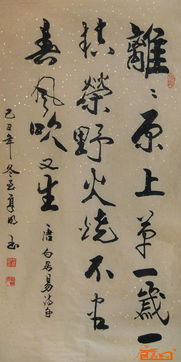 離〻原上草一歲一
枯榮野火燒不盡
春風吹又生 唐白居易诗句
己丑年冬月